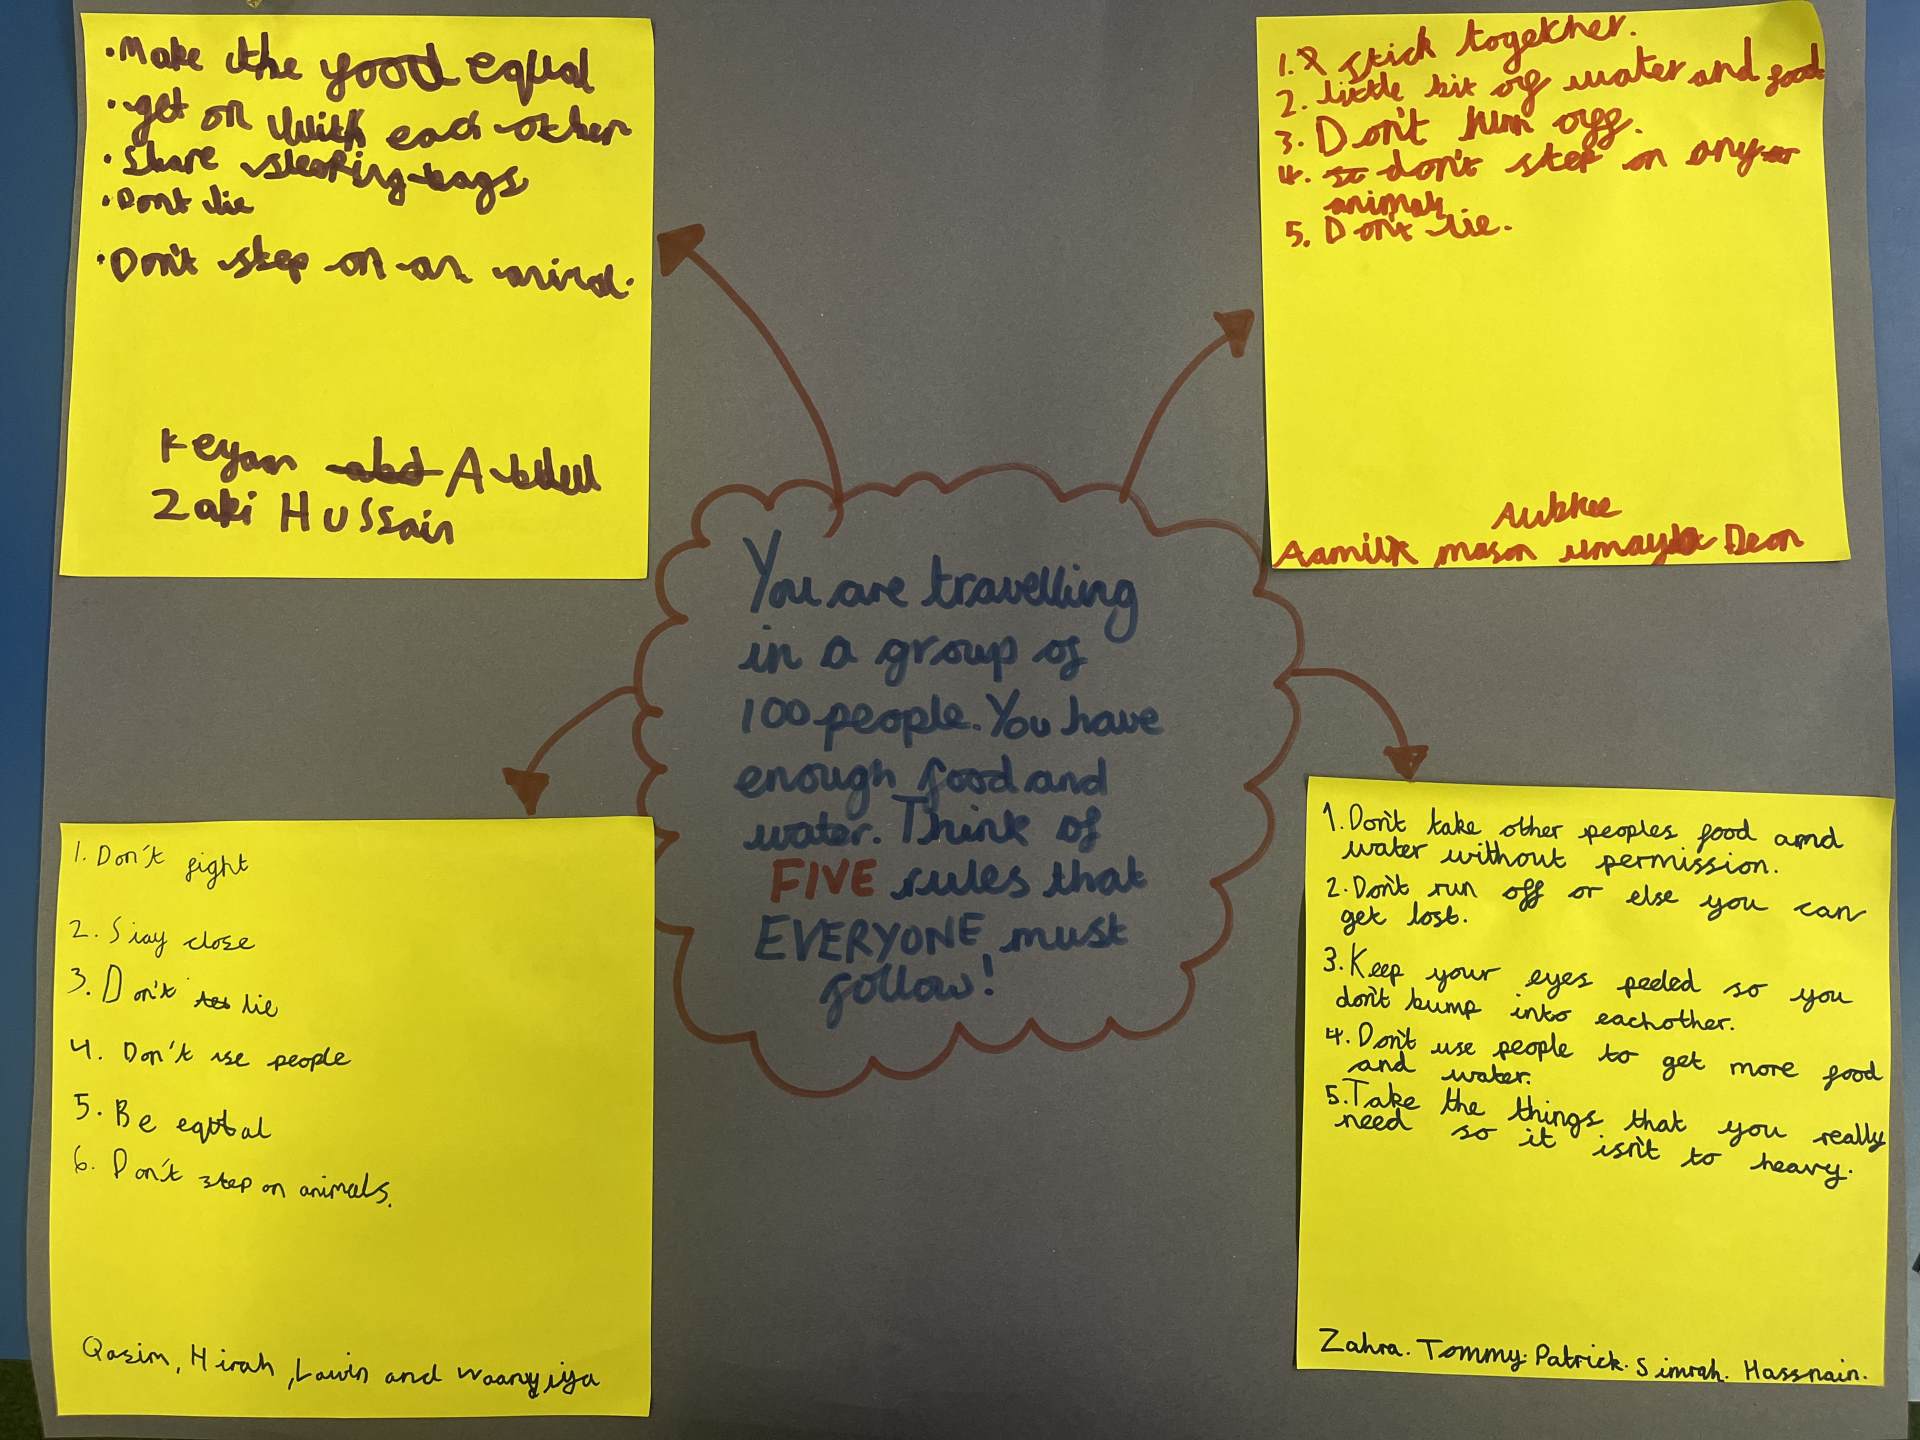 • Make the food equal
• get on with each other
• Share sleeping bags
• Dont lie
• Don't step on an animal.
Keyan Abdul
Zaki Hussain
1. stick together.
2. little bit of water and food
3. Don't run off.
4. don't step on any
animals
5. Don't lie.
Aamilk mason umayla Deon
You are travelling
in a group of
100 people. You have
enough food and
water. Think of
FIVE rules that
EVERYONE must
follow!
1. Don't fight
2. Stay close
3. Don't lie
4. Don't use people
5. Be eqtual
6. Don't step on animals.
Qasim, Hirah, Lawin and
1. Don't take other peoples food amd
water without permission.
2. Don't run off or else you can
get lost.
3. Keep your eyes peeled so you
don't bump into eachother.
4. Don't use people to get more food
and water.
5. Take the things that you really
need so it isn't to heavy.
Zahra. Tommy. Patrick. Simrah. Hassnain.